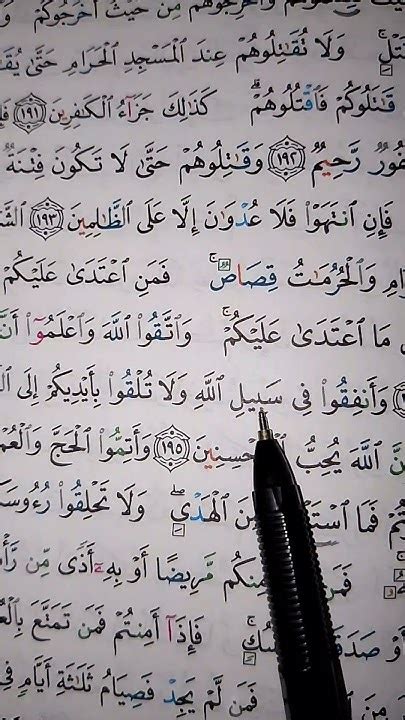 وَأَخۡرِجُوهُم مِّنۡ حَيۡثُ أَخۡرَجُوكُمۡ
وَلَا تُقَٰتِلُوهُمۡ عِندَ ٱلۡمَسۡجِدِ ٱلۡحَرَامِ حَتَّىٰ
قَٰتَلُوكُمۡ فَٱقۡتُلُوهُمۡۗ كَذَٰلِكَ جَزَآءُ ٱلۡكَٰفِرِينَ ١٩١
رَّحِيمٞ ١٩٢ وَقَٰتِلُوهُمۡ حَتَّىٰ لَا تَكُونَ فِتۡنَةٞ
فَإِنِ ٱنتَهَوۡاْ فَلَا عُدۡوَٰنَ إِلَّا عَلَى ٱلظَّٰلِمِينَ ١٩٣
وَٱلۡحُرُمَٰتُ قِصَاصٞۚ فَمَنِ ٱعۡتَدَىٰ عَلَيۡكُمۡ
مَا ٱعۡتَدَىٰ عَلَيۡكُمۡۚ وَٱتَّقُواْ ٱللَّهَ وَٱعۡلَمُوٓاْ
وَأَنفِقُواْ فِي سَبِيلِ ٱللَّهِ وَلَا تُلۡقُواْ بِأَيۡدِيكُمۡ إِلَى
ٱللَّهَ يُحِبُّ ١٩٥ وَأَتِمُّواْ ٱلۡحَجَّ
فَمَا ٱلۡهَدۡيِۖ وَلَا تَحۡلِقُواْ
مَّرِيضًا أَوۡ بِهِۦٓ أَذٗى مِّن
أَوۡ فَإِذَآ أَمِنتُمۡ فَمَن تَمَتَّعَ
فَمَن لَّمۡ يَجِدۡ فَصِيَامُ ثَلَٰثَةِ أَيَّامٖ فِي